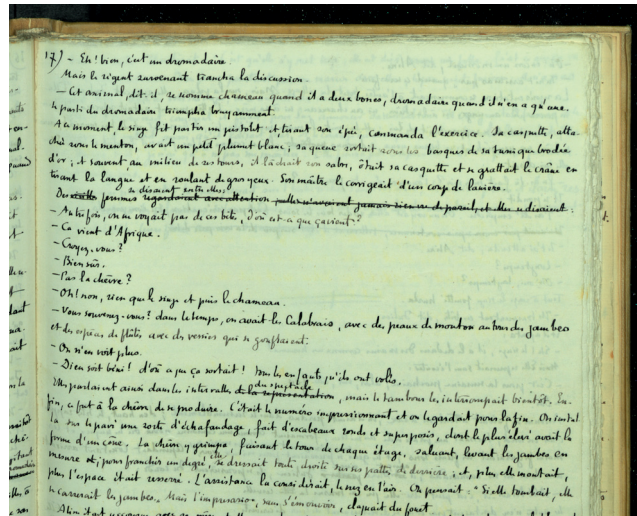 17) — Eh! bien, c'est un dromadaire.
Mais le régent survenant trancha la discussion.
— Cet animal, dit-il, se nomme chameau quand il a deux bosses, dromadaire quand il n'en a qu'une.
Le parti du dromadaire triompha bruyamment.
A ce moment, le singe fit partir un pistolet et, tirant son épée, commanda l'exercice. Sa casquette, atta-
chée sous le menton, avait un petit plumet blanc; sa queue sortait sous les basques de sa tunique brodée
d'or; et souvent au milieu de ses tours, il lâchait son sabre, ôtait sa casquette et se grattait le crâne en
tirant la langue et en roulant de gros yeux. Son maître le corrigeait d'un coup de lanière.
se disaient entre elles:
Des vieilles femmes regardaient avec attention, elles n'avaient jamais rien vu de pareil, et elles se disaient:
— Autrefois, on ne voyait pas de ces bêtes, d'où est-ce que ça vient?
— Ça vient d'Afrique.
— Croyez-vous?
— Bien sûr.
— Pas la chèvre?
— Oh! non, rien que le singe et puis le chameau.
— Vous souvenez-vous? dans le temps, on avait les Calabrais, avec des peaux de mouton autour des jambes
et des espèces de flûtes avec des vessies qui se gonflaient.
— On n'en voit plus.
— Dieu soit béni! d'où que ça sortait! Tous les enfants qu'ils ont volés.
du spectacle
Elles parlaient ainsi dans les intervalles de la représentation, mais le tambour les interrompait bientôt. En-
fin, ce fut à la chèvre de se produire. C'était le numéro impressionnant et on le gardait pour la fin. On instal
la sur le pavé une sorte d'échafaudage, fait d'escabeaux ronds et superposés, dont le plus élevé avait la
forme d'un cône. La chèvre y grimpa, faisant le tour de chaque étage, saluant, levant les jambes en
mesure et, pour franchir un degré, elle se dressait toute droite sur ses pattes de derrière; et, plus elle montait,
plus l'espace était resserré. L'assistance la considérait, le nez en l'air. On pensait: "Si elle tombait, elle
se casserait les jambes." Mais l'impresario, sans s'émouvoir, claquait du fouet.